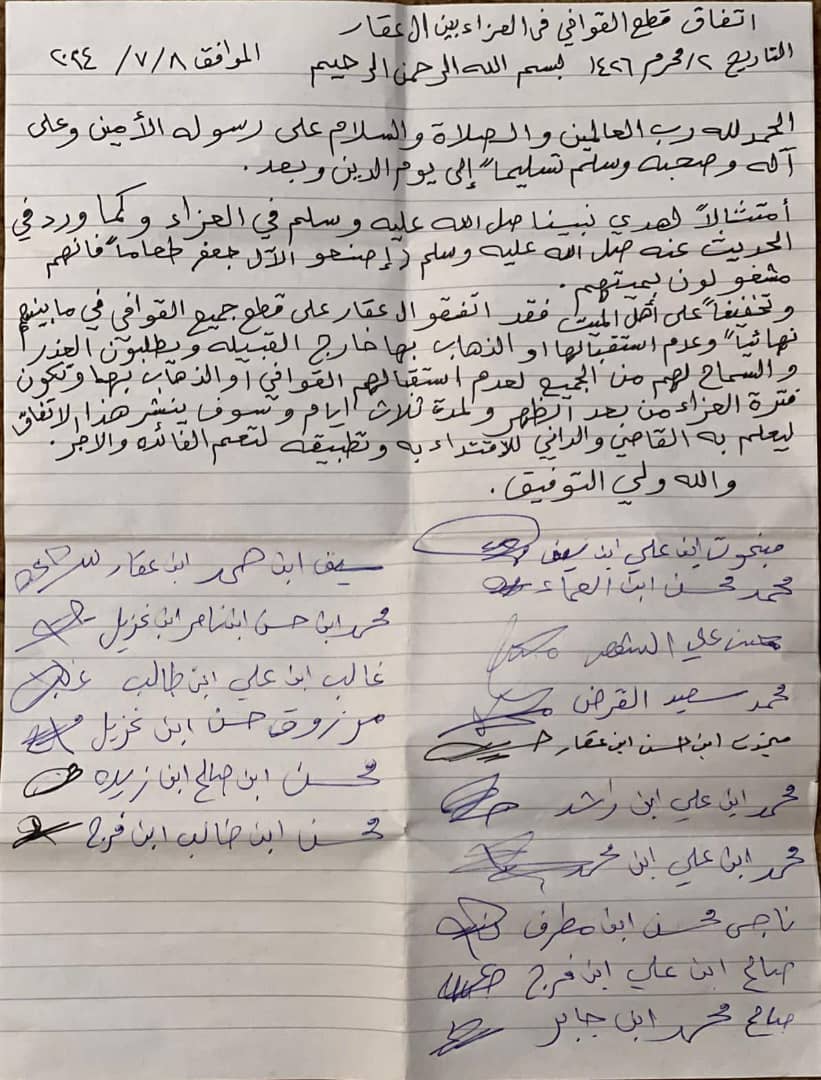 اتفاق قطع القوافي في العزاء بين ال عقار
التاريخ ٢/محرم ١٤٢٦ بسم الله الرحمن الرحيم الموافق ٢٠٢٤/٧/٨
الحمد لله رب العالمين والصلاة والسلام على رسوله الأمين وعلى
آله وصحبه وسلم تسليماً إلى يوم الدين وبعد.
أمتثالاً لهدي نبينا صل الله عليه وسلم في العزاء وكما ورد في
الحديث عنه صل الله عليه وسلم (إصنعو الآل جعفر طعاماً فانهم
مشغولون بميتهم.
وتخفيفاً على أهل الميت فقد اتفقو ال عقار على قطع جميع القوافي في ما بينهم
نهائياً وعدم استقبالها او الذهاب بها خارج القبيله ويطلبون العذر
والسماح لهم من الجميع لعدم استقبالهم القوافي أو الذهاب بها وتكون
فترة العزاء من بعد الظهر ولمدة ثلاث ايام وسوف ينشر هذا الاتفاق
ليعلم به القاصي والداني للاقتداء به وتطبيقه لتعم الفائده والاجر.
والله ولي التوفيق.
مبخوت ابن علي ابن سيف
محمد محسن ابن العماء
محسن علي
محمد سعيد القرض
مبخوت ابن حسن ابن عقار
محمد ابن علي ابن راشد
محمد ابن علي ابن محمد
ناجي محسن ابن مطرف
صالح ابن علي ابن فرج
صالح محمد ابن جابر
سيف ابن حمد ابن عقار
محمد ابن حسن ابن ناصر ابن غزيل
غالب ابن علي ابن طالب
مرزوق حسن ابن غزيل
محسن ابن صالح ابن زيده
محسن ابن طالب ابن فرج